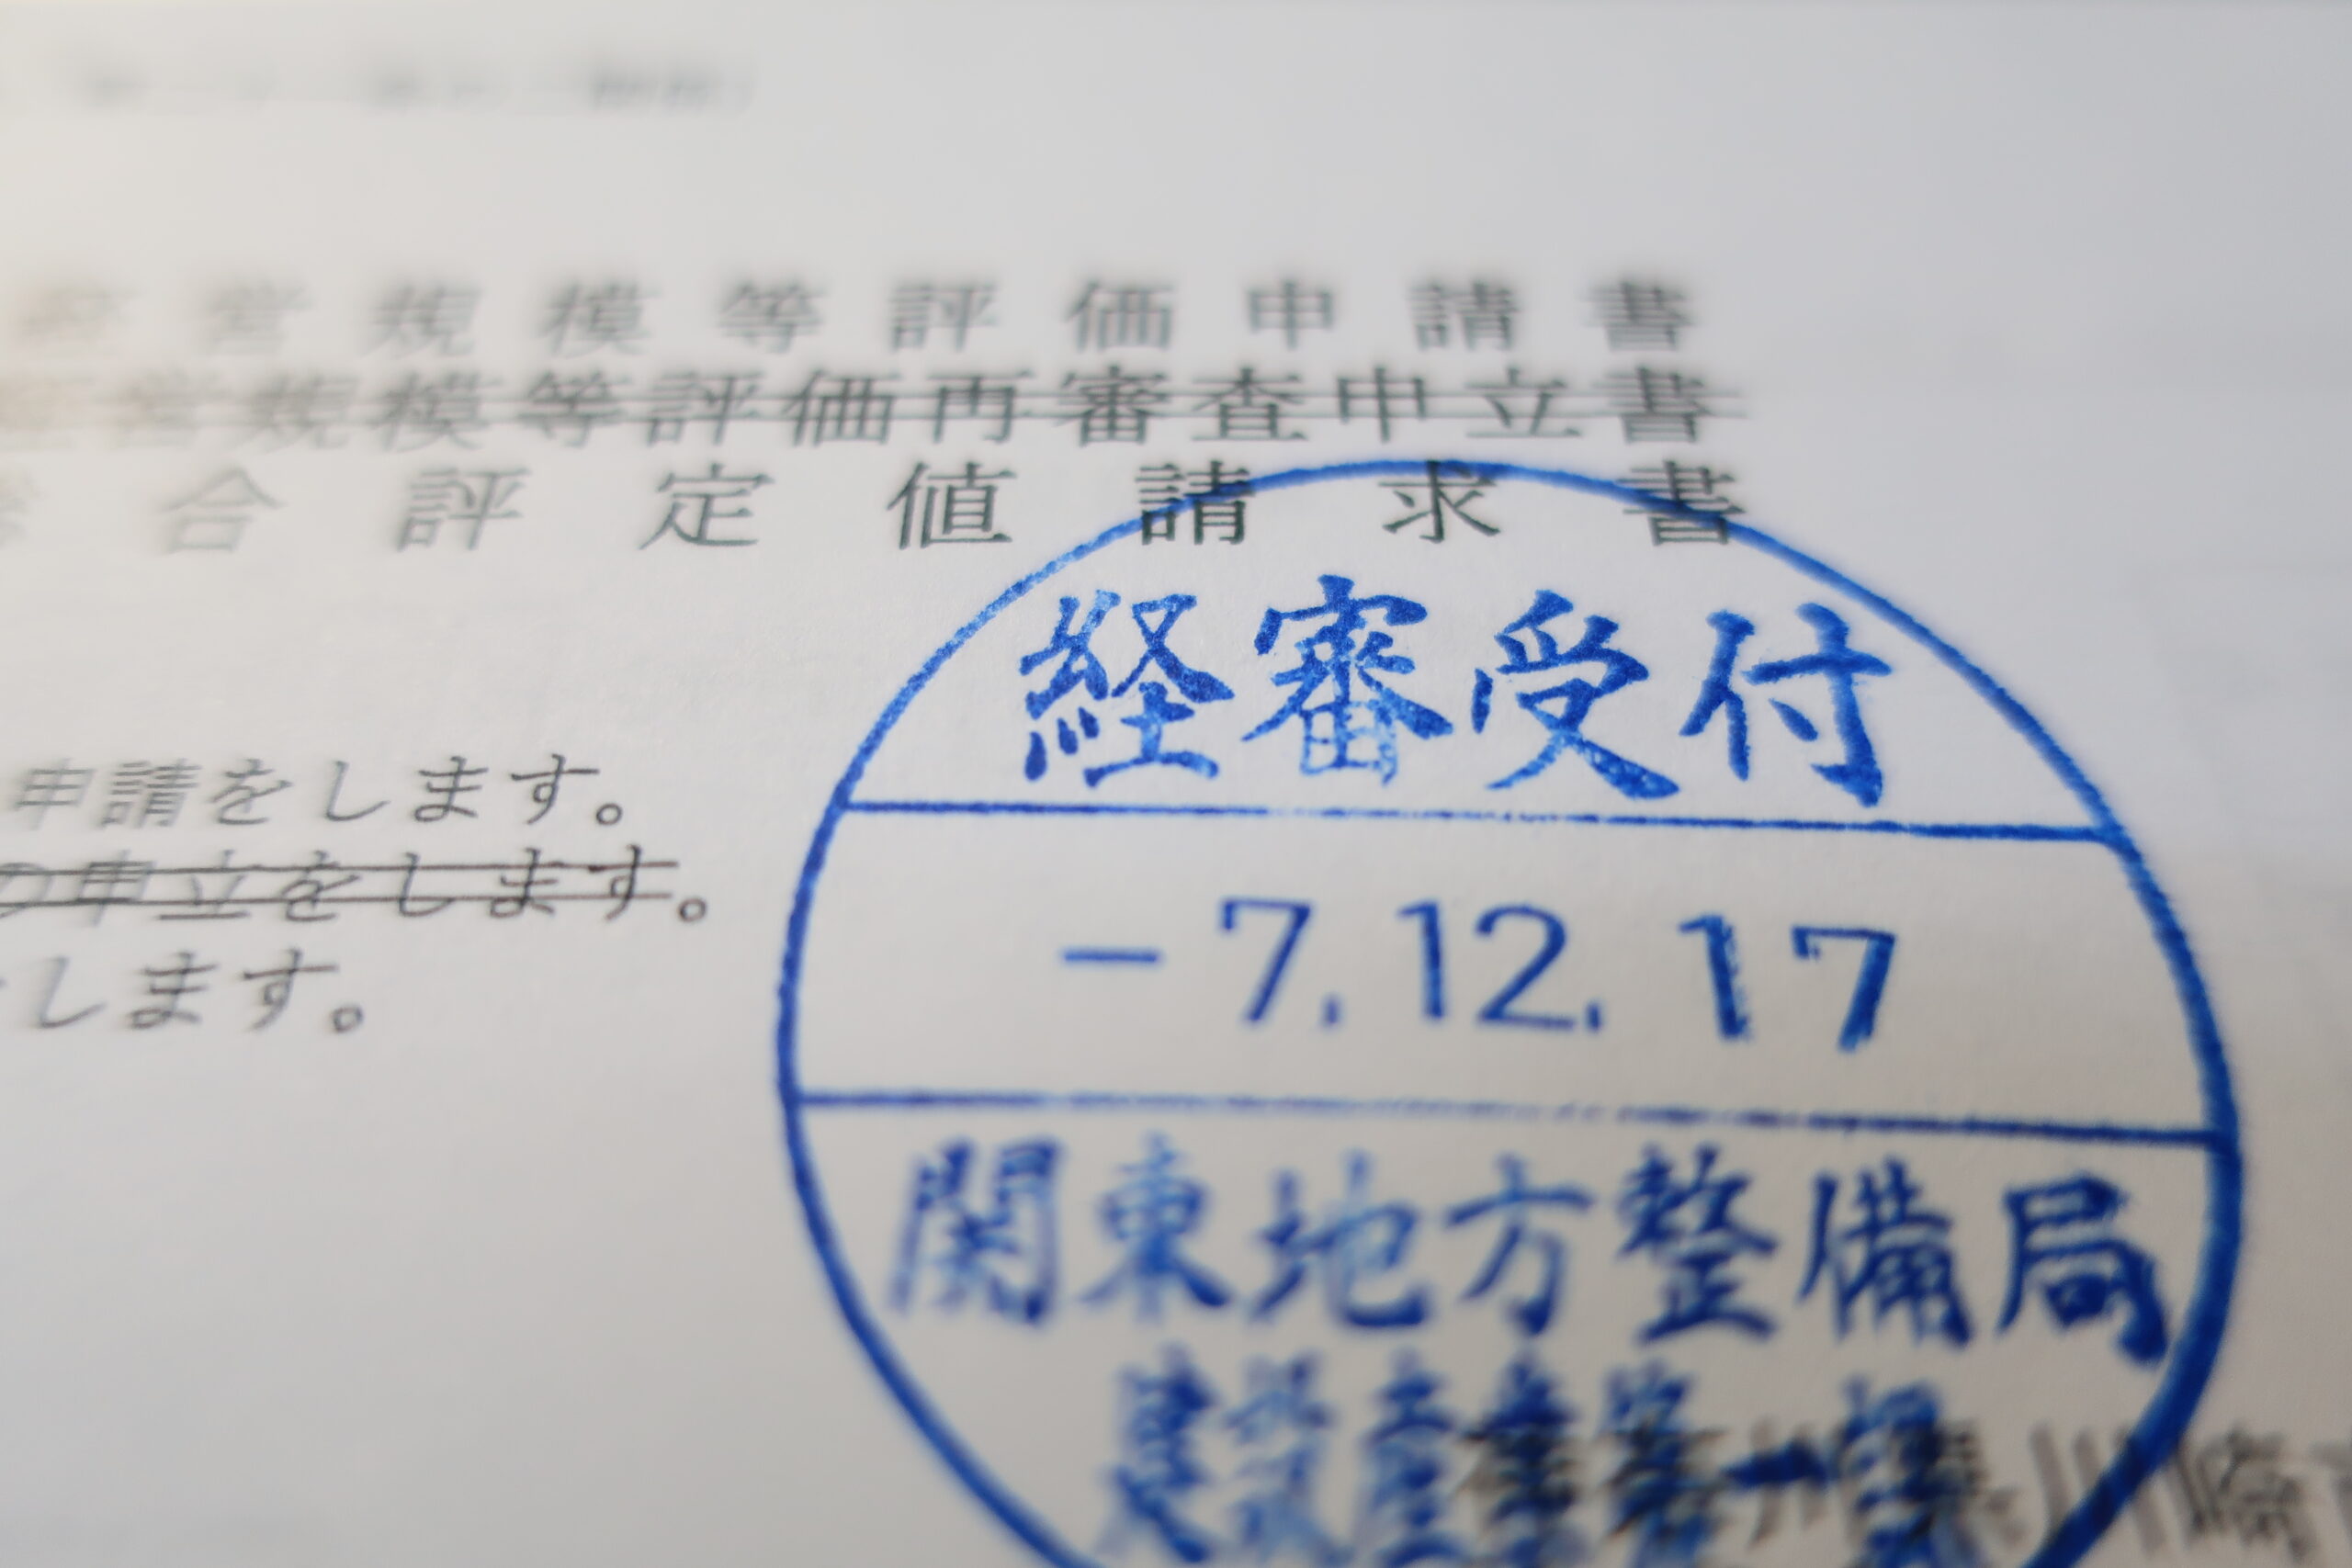 経営規模等評価申請書
経営規模等評価再審査申立書
総合評定値請求書
申請をします。
の申立をします。
します。
経審受付
-7.12.17
関東地方整備局
建設産業第一課
川崎